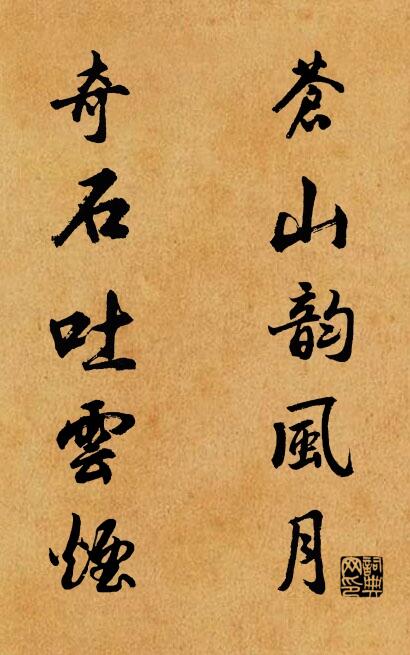 蒼山韵風月
奇石吐雲煙
詞典网印